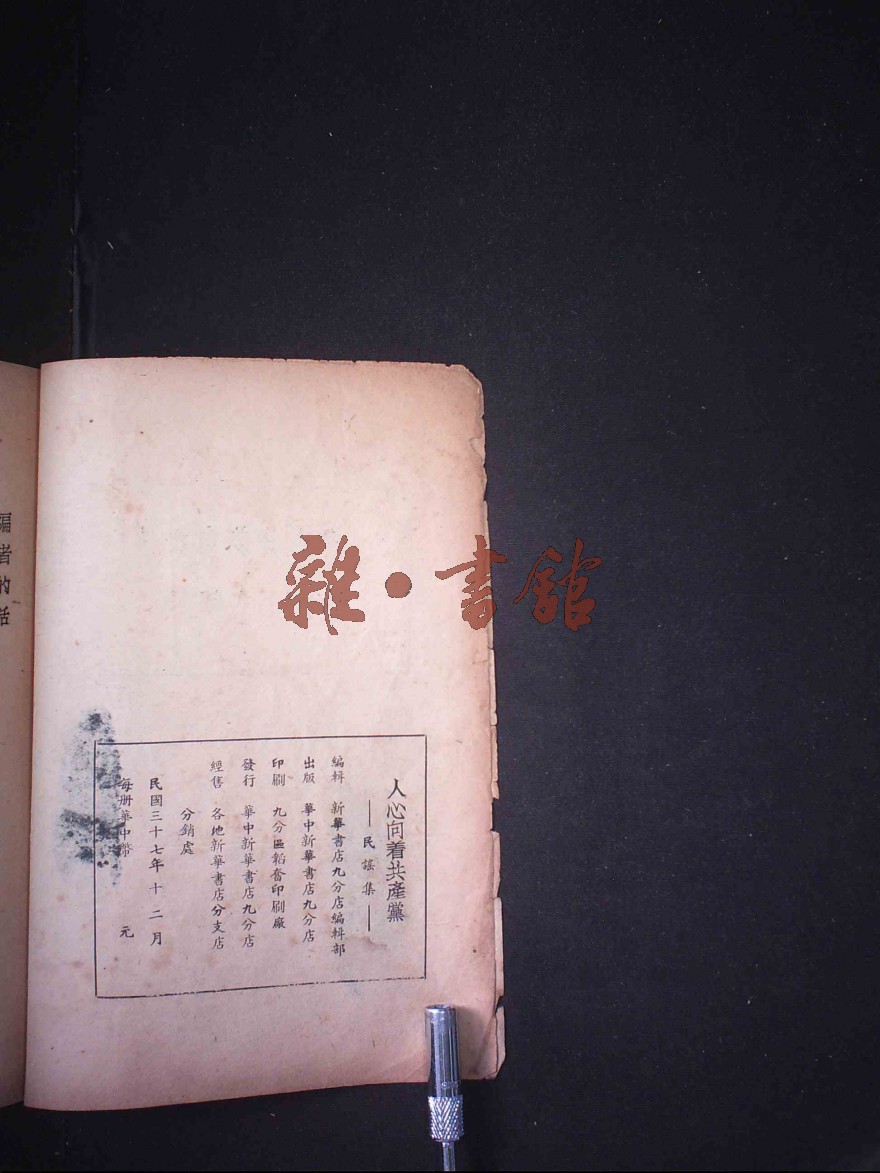 人心向着共產黨
——民謠集——
編輯 新華書店九分店編輯部
出版 華中新華書店九分店
印刷 九分區韜奮印刷廠
發行 華中新華書店九分店
經售 各地新華書店分支店
分銷處
民國三十七年十二月
每册華中幣 元
編者的話
雜·書館